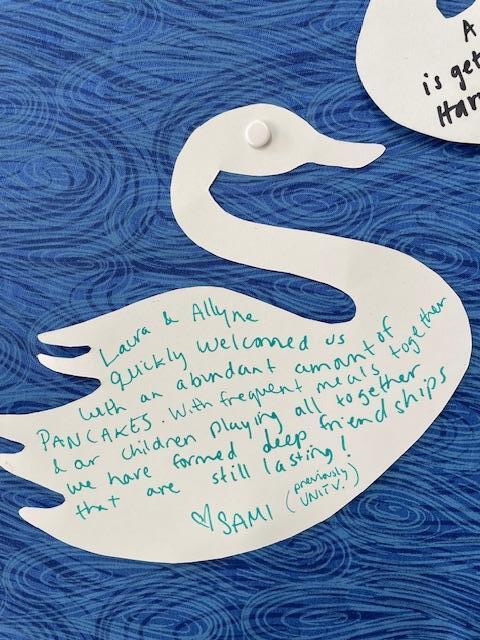 A
is get
Har
Laura & Allyne
quickly welcomed us
with an abundant amount of
PANCAKES. With frequent meals together
& our children playing all together
we have formed deep friendships
that are still lasting!
♡SAMI (previously
UNITV.)